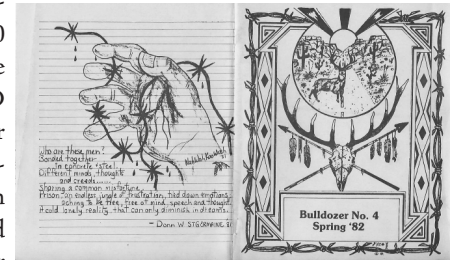 Who are these men?
Bonded together
In concrete & steel
Different minds, thoughts
and creeds.......
Sharing a common misfortune
Prison, an endless jungle of frustration, tied down emotions
aching to be free, free of mind, speech and thought.
A cold lonely reality that can only diminish in dreams.
- Donn W. ST.GERMAINE
Bulldozer No. 4
Spring '82